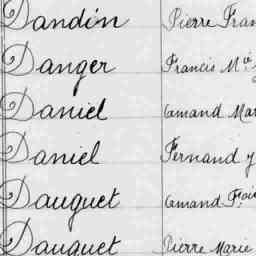 Dandin Pierre Fran
Danger Francis Mie
Daniel Amand Mar
Daniel Fernand y
Dauguet Amand Fçois
Dauguet Pierre Marie